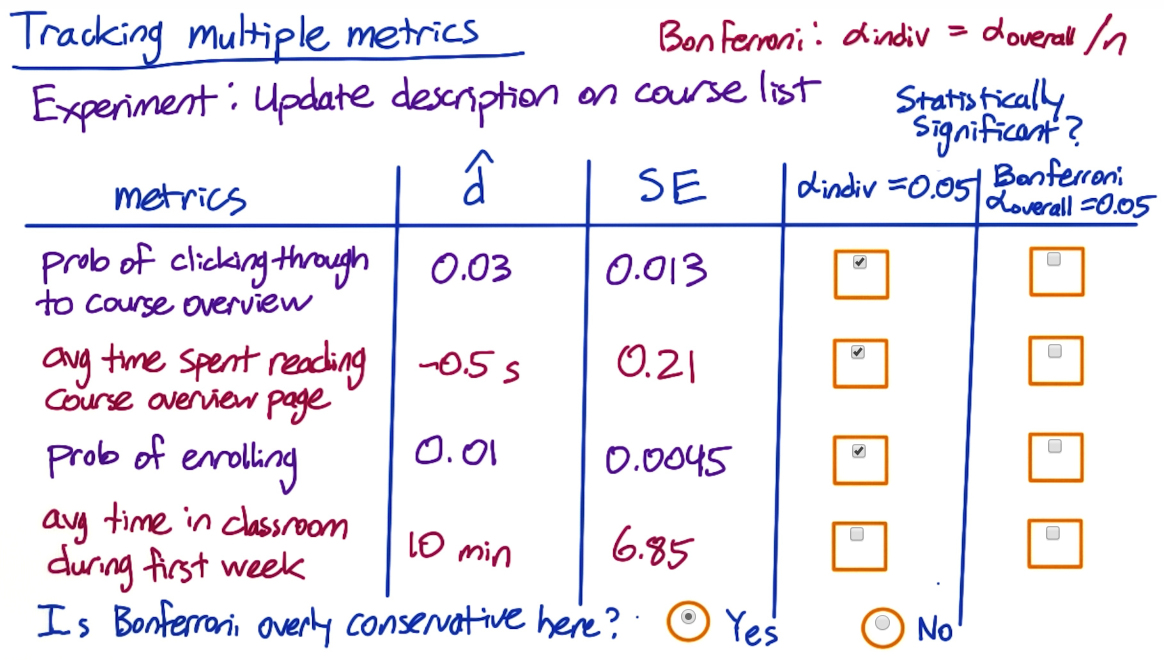 Tracking multiple metrics
Bonferroni: αindiv = αoverall/n
Experiment: Update description on course list
Statistically
Significant?
metrics
d̂
SE
αindiv = 0.05
Bonferroni
αoverall = 0.05
prob of clicking through
to course overview
0.03
0.013
avg time spent reading
course overview page
-0.5 s
0.21
prob of enrolling
0.01
0.0045
avg time in classroom
during first week
10 min
6.85
Is Bonferroni overly conservative here? Yes No